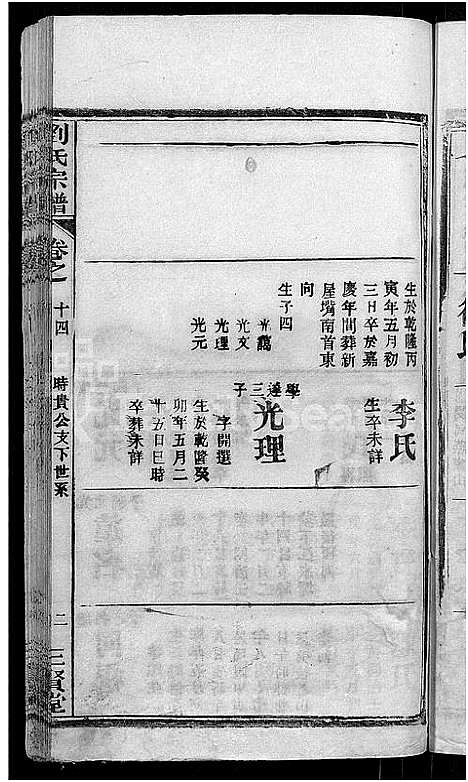 生於乾隆丙
寅年五月初
三日卒於嘉
慶年間葬新
屋嘴南首東
向
生子四
光萬
光文
光理
光元
李氏
生卒未詳
學達三子
光理
字開選
生於乾隆癸
卯年五月二
十五日巳時
卒葬未詳
劉氏宗譜
卷之十四
時貴公支下世系
二
三賢堂